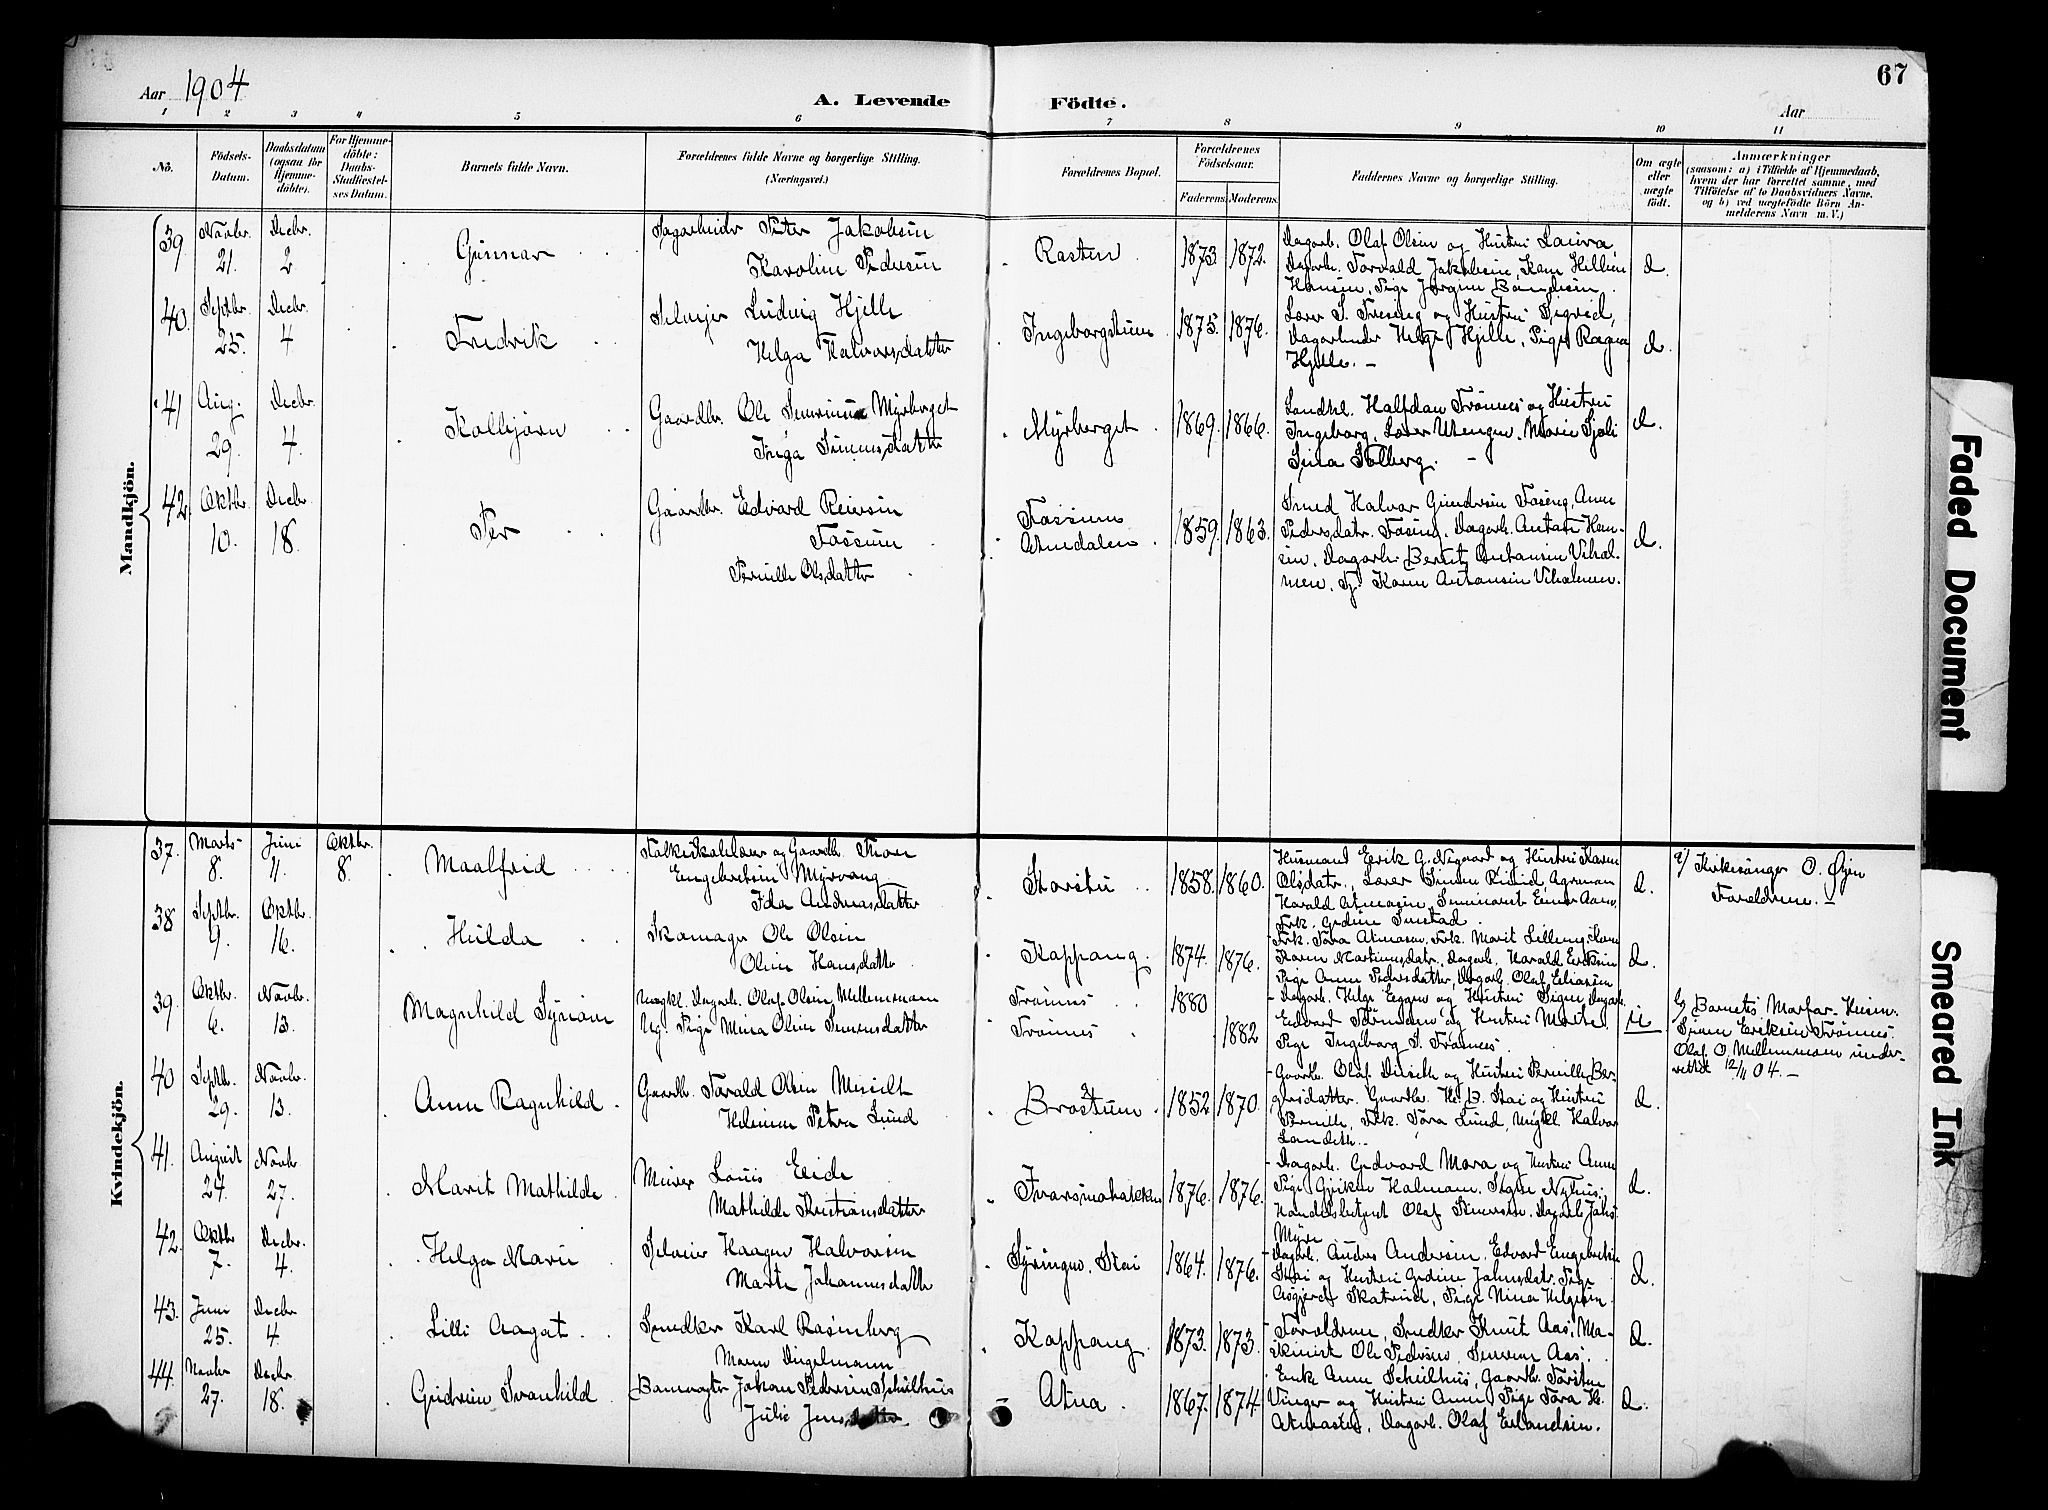 67
Aar 1904
A. Levende Födte.
Aar
1 2 3 4 5 6 7 8 9 10 11
No.
Födsels-
Datum.
Daabsdatum
(ogsaa for
Hjemme-
döbte).
For Hjemme-
döbte:
Daabs-
Stadfæstel-
ses Datum.
Barnets fulde Navn.
Forældrenes fulde Navne og borgerlige Stilling.
(Næringsvei.)
Forældrenes Bopæl.
Forældrenes
Födselsaar.
Faderens. Moderens.
Faddernes Navne og borgerlige Stilling.
Om ægte
eller
uægte
födt.
Anmærkninger
(saasom: a) i Tilfælde af Hjemmedaab,
hvem der har forrettet samme, med
Tilföielse af to Daabsvidners Navne,
og b) ved uægtefödte Börn An-
melderens Navn m. V.)
Mandkjön.
39 Novbr. 21. Decbr. 2
Gunnar
Dagarbeider Peter Jakobsen
Karoline Pedersen
Rasten 1873. 1872.
Dagarb. Olaf Olsen og Hustru Laura,
Dagarb. Torvald Jakobsen,
Hansen, Pige Jørgine
40. Septbr. 25. Decbr. 4
Fredrik
Selveier Ludvig Hjelle
Helga Halvorsdatter
Ingeborgstuen 1875. 1876.
Lærer S. og Hustru Sigrid,
Dagarbeider Helge Hjelle, Pige Ragna
Hjelle. –
41 Aug. 29. Decbr. 4.
Kolbjørn
Gaardbr. Ole Simensen Myrberget
Inga Simensdatter
Myrberget 1869. 1866.
Landhl. Halfdan Trønnes og Hustru
Ingeborg, Lærer Utengen, Marie Sjøli
Solberg. –
42. Oktbr. 10. Decbr. 18.
Per
Gaardbr. Edvard Reiersen
Fossum
Pernille Olsdatter
Fossum
Atnedalen. 1859. 1863.
Smed Halvor Gundersen Fosseng, Anne
Pedersdatr. Fosseng, Dagarb. Anton Han-
sen, Dagarb. Bernt Antonsen
Karen Antonsen
Kvindekjön.
37. Marts 8. Juni 11. Oktbr. 8.
Maalfrid
Folkeskolelærer og Gaardbr. Thore
Engebretsen Myrvang
Ida Andreasdatter
Storstu 1858. 1860.
Husmand Eerik G. Nygaard og Hustru Karen
Olsdatr., Lærer Simen
Harald Atneosen, Seminarist Einar Aaen,
Frk. Gudine Smestad
a) Kirkesanger O. Øyen
Forældrene. –
38 Septbr. 9. Oktbr. 16.
Hulda
Skomager Ole Olsen
Oline Hansdatter
Koppang. 1874. 1876.
Frk. Tora Atneosen, Frk. Marit Lilleng,
Karen Martinusdatr., Dagarb. Harald Eriksen
Pige Anne Pedersdatter, Dagarb. Olaf Eliasen
39. Oktbr. 6. Novbr. 13.
Magnhild Syrione
Ungkl. Dagarb. Olaf Olsen Mellemmoen
Ug. Pige Mina Oline Simensdatter
Trønnes 1880
Trønnes 1882
Dagarb. Helge Eggen og Hustru Signe, Dagarb.
Edvard og Hustru Marte,
Pige Ingeborg S. Trønnes.
b) Barnets Morfar Husm.
Simen Eriksen Trønnes.
Olaf O. Mellemmoen under-
rettet 12/11 04. –
40 Septbr. 29. Novbr. 13.
Anne Ragnhild
Gaardb. Torald Olsen Messelt
Helene Petra Lund
Brostuen. 1852 1870.
Gaarb. Olaf og Hustru Pernille Ber-
gersdatter, Gaardb. H. B. Stai og Hustru
Pernille, Frk. Tora Lund, Ungkl. Halvor
41. August 24. Novb. 27.
Marit Mathilde
Murer Louis Eide
Mathilde Kristiansdatter
Ivarsmobakken 1876. 1876.
Dagarb. Gudvard Mora og Hustru Anne
Pige Holmen, Signe Nyhus,
Handelsbetjent Olaf Simensen, Dagarb. Johs.
Myre
42. Oktbr. 7. Decbr. 4.
Helga Marie
Selveier Haagen Halvorsen
Marte Johannesdatter
Syringen, Stai 1864. 1876.
Dagarb. Anders Andersen, Edvard Engebretsen
Stai og Hustru Gudine Johnsdatr., Pige
Asgjerd Skatrud, Pige Nina Helgesen.
43. Juni 25. Decbr. 4
Lilli Aagot
Snedker Karl Rosenberg
Maren Dingelmann
Koppang 1873. 1873.
Forældrene, Snedker Knut Aas, Ma-
skinist Ole Pedersen, Aas.
44. Novbr. 27. Decbr. 18.
Gudrun Svanhild
Banevogter Johan Pedersen Schulhus
Julie Jensdatter.
Atna 1867. 1874
Enke Anne Schulhus, Gaardb. Torsten
Vinger og Hustru Anne, Pige Tora H.
Atneosen, Dagarb. Olaf Erlandsen.
Faded Document
Smeared Ink